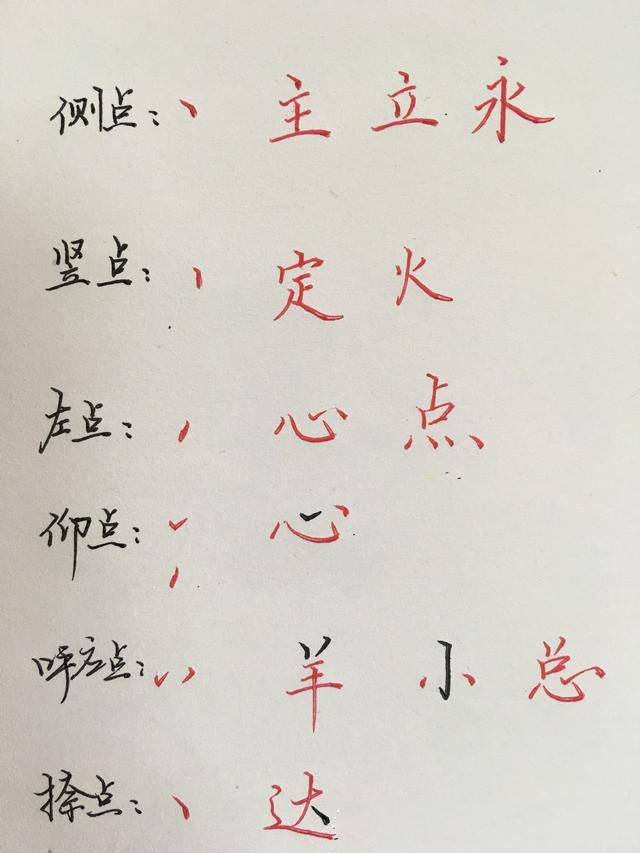 侧点：丶 主 立 永
竖点： 定 火
左点： 心 点
仰点： 心
呼应点： 羊 小 总
捺点：丶 达